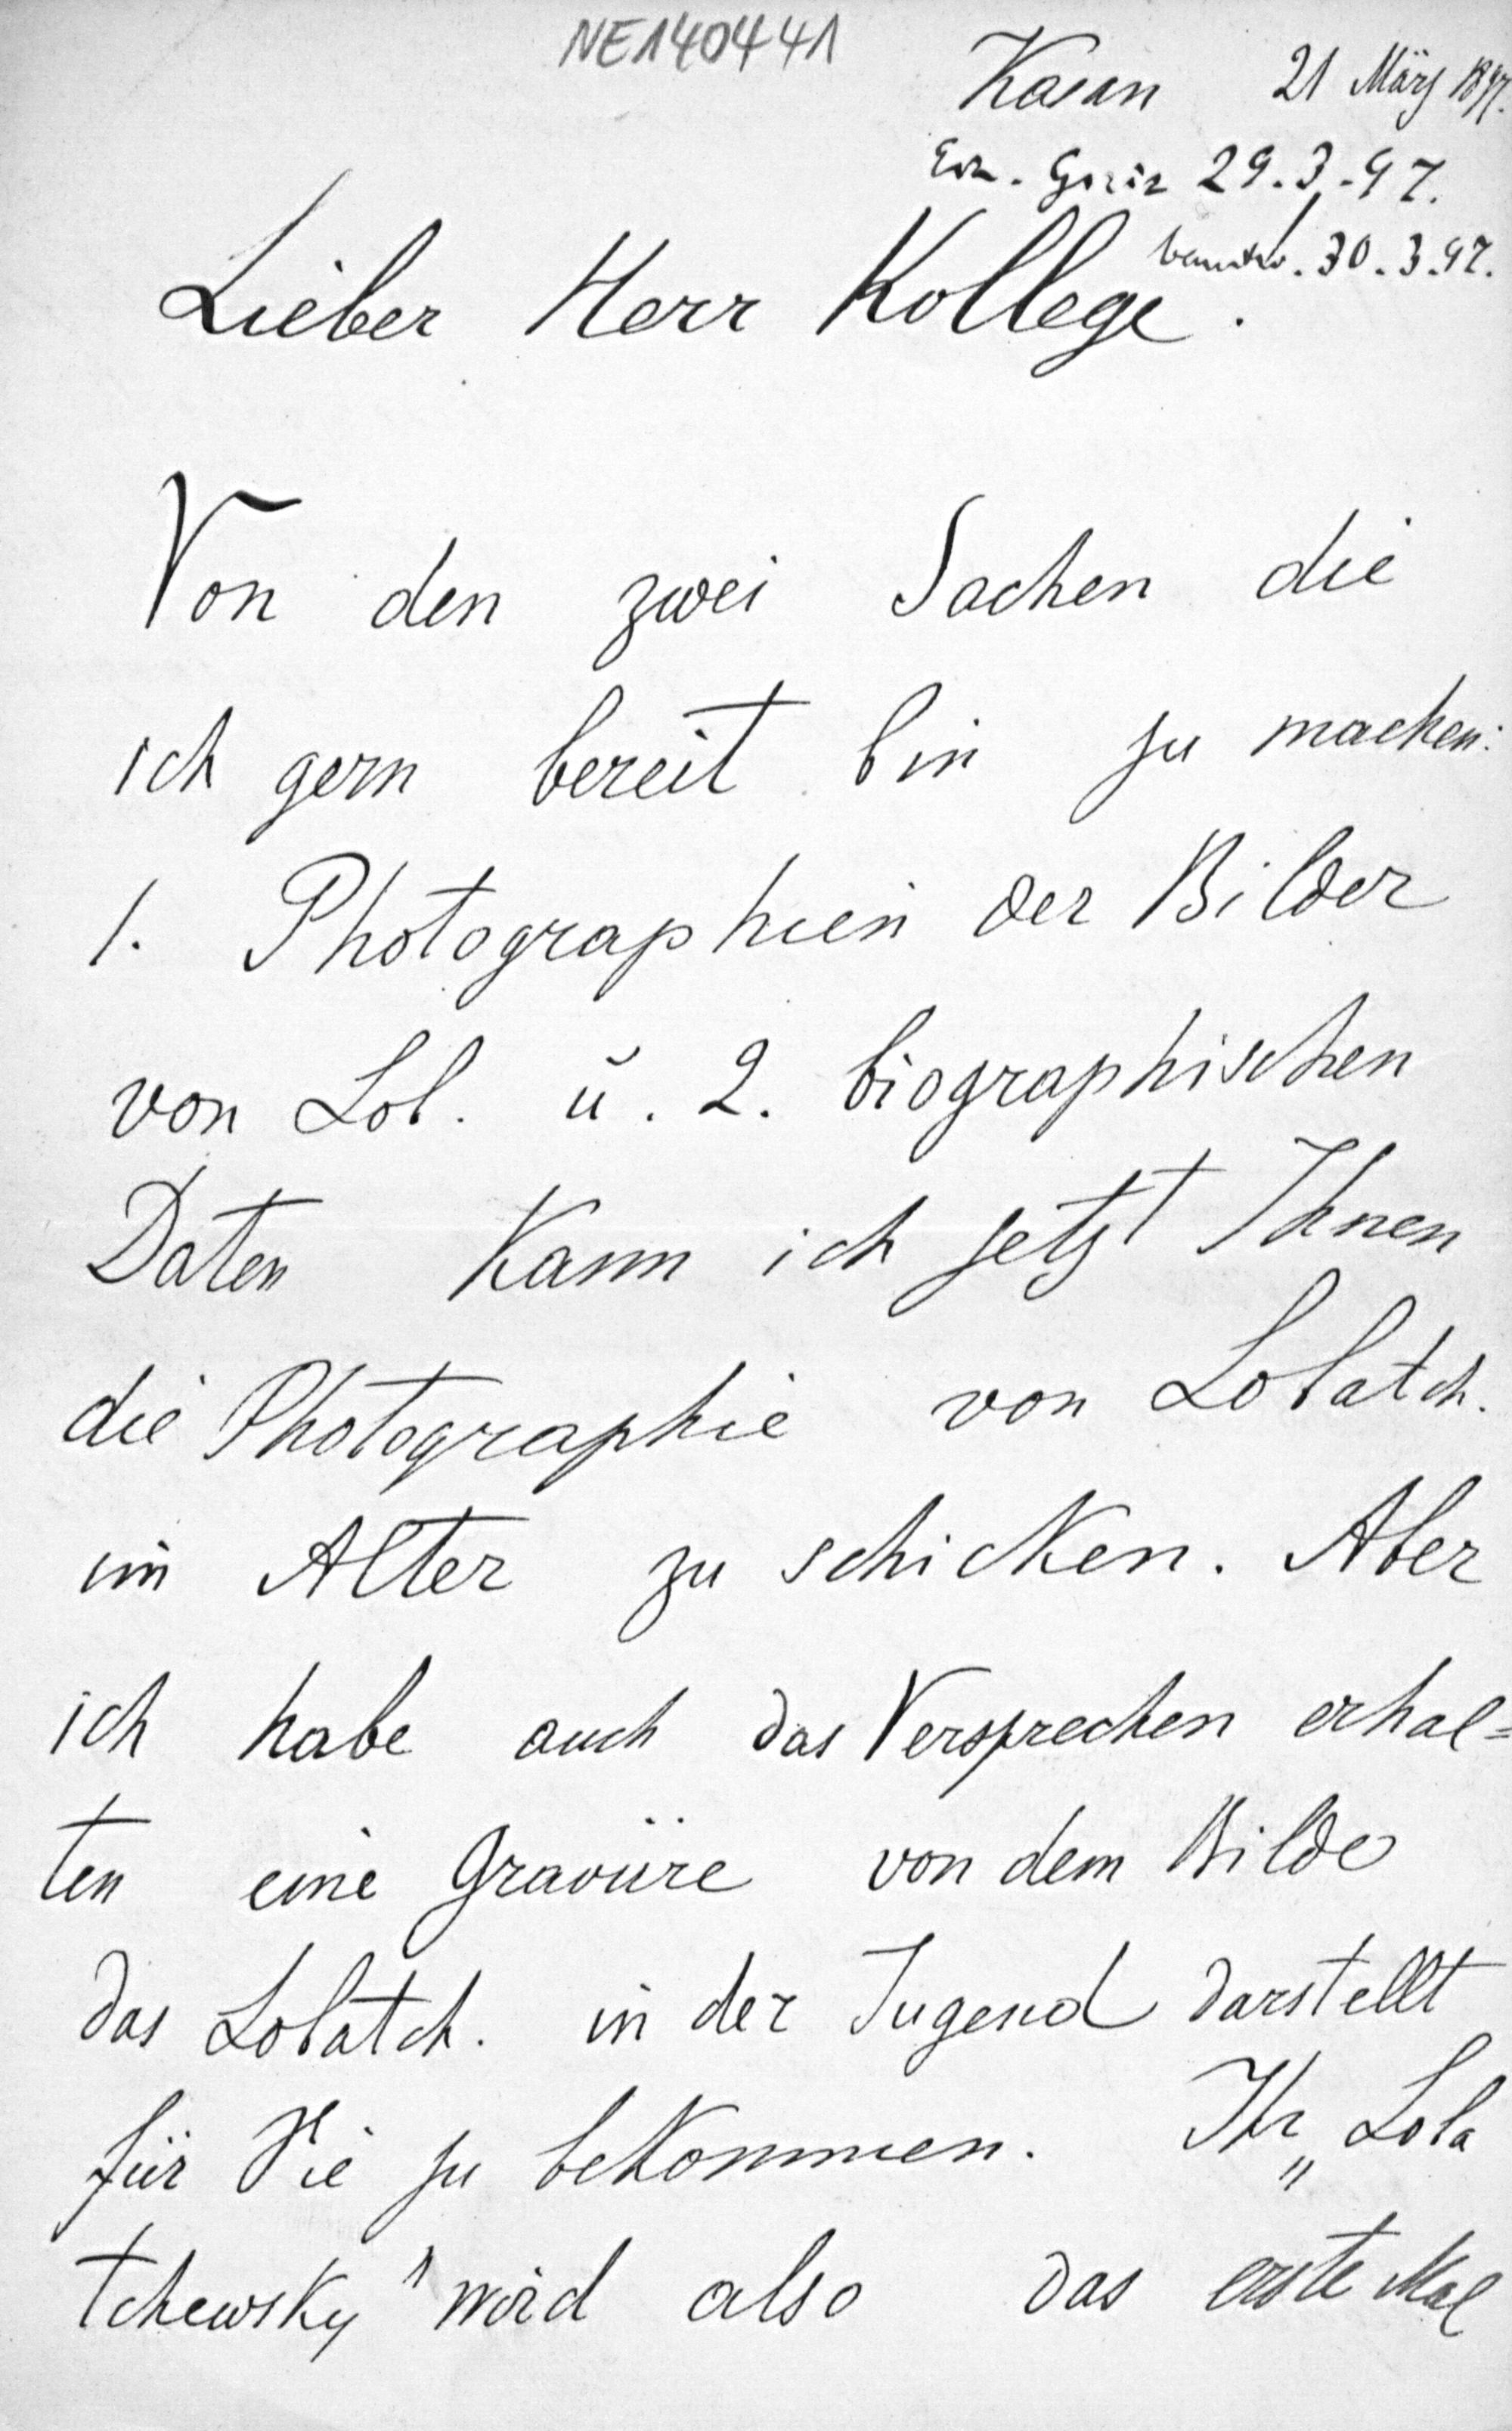 NE140441
Kasan 21 März 1897.
29.3.97.
30.3.97.
Lieber Herr Kollege.
Von den zwei Sachen die
ich gern bereit bin zu machen:
1. Photographien der Bilder
von Lob. u. 2. biographischen
Daten kann ich jetzt Ihnen
die Photographie von Lobatch.
im Alter zu schicken. Aber
ich habe auch das Versprechen erhal=
ten eine Gravüre von dem Bilde
das Lobatch. in der Jugend darstellt
für Sie zu bekommen. Ihr „Loba
tchewsky" wird also das erste Mal